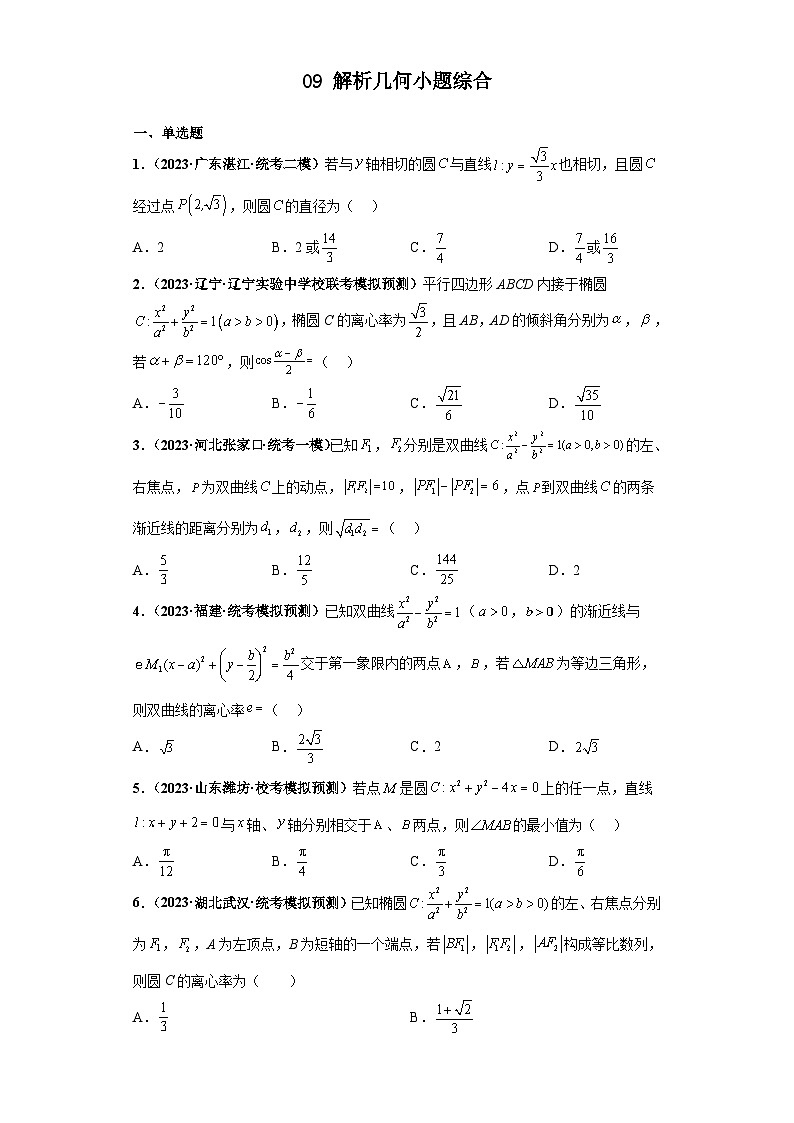 09 解析几何小题综合
一、单选题
1.(2023·广东湛江·统考二模)若与y轴相切的圆C与直线l:y=√3/3x也相切,且圆C
经过点P(2,√3),则圆C的直径为( )
A.2 B.2或14/3 C.7/4 D.7/4或16/3
2.(2023·辽宁·辽宁实验中学校联考模拟预测)平行四边形ABCD内接于椭圆
C:x²/a²+y²/b²=1(a>b>0),椭圆C的离心率为√3/2,且AB,AD的倾斜角分别为α,β,
若α+β=120°,则cos(α-β)/2=( )
A.-3/10 B.-1/6 C.√21/6 D.√35/10
3.(2023·河北张家口·统考一模)已知F₁,F₂分别是双曲线C:x²/a²-y²/b²=1(a>0,b>0)的左、
右焦点,P为双曲线C上的动点,|F₁F₂|=10,|PF₁|-|PF₂|=6,点P到双曲线C的两条
渐近线的距离分别为d₁,d₂,则√d₁d₂=( )
A.5/3 B.12/5 C.144/25 D.2
4.(2023·福建·统考模拟预测)已知双曲线x²/a²-y²/b²=1(a>0,b>0)的渐近线与
∈M₁(x-a)²+(y-b/2)²=b²/4交于第一象限内的两点A,B,若△MAB为等边三角形,
则双曲线的离心率e=( )
A.√3 B.2√3/3 C.2 D.2√3
5.(2023·山东潍坊·校考模拟预测)若点M是圆C:x²+y²-4x=0上的任一点,直线
l:x+y+2=0与x轴、y轴分别相交于A、B两点,则∠MAB的最小值为( )
A.π/12 B.π/4 C.π/3 D.π/6
6.(2023·湖北武汉·统考模拟预测)已知椭圆C:x²/a²+y²/b²=1(a>b>0)的左、右焦点分别
为F₁,F₂,A为左顶点,B为短轴的一个端点,若|BF₁|,|F₁F₂|,|AF₂|构成等比数列,
则圆C的离心率为( )
A.1/3 B.1+√2/3